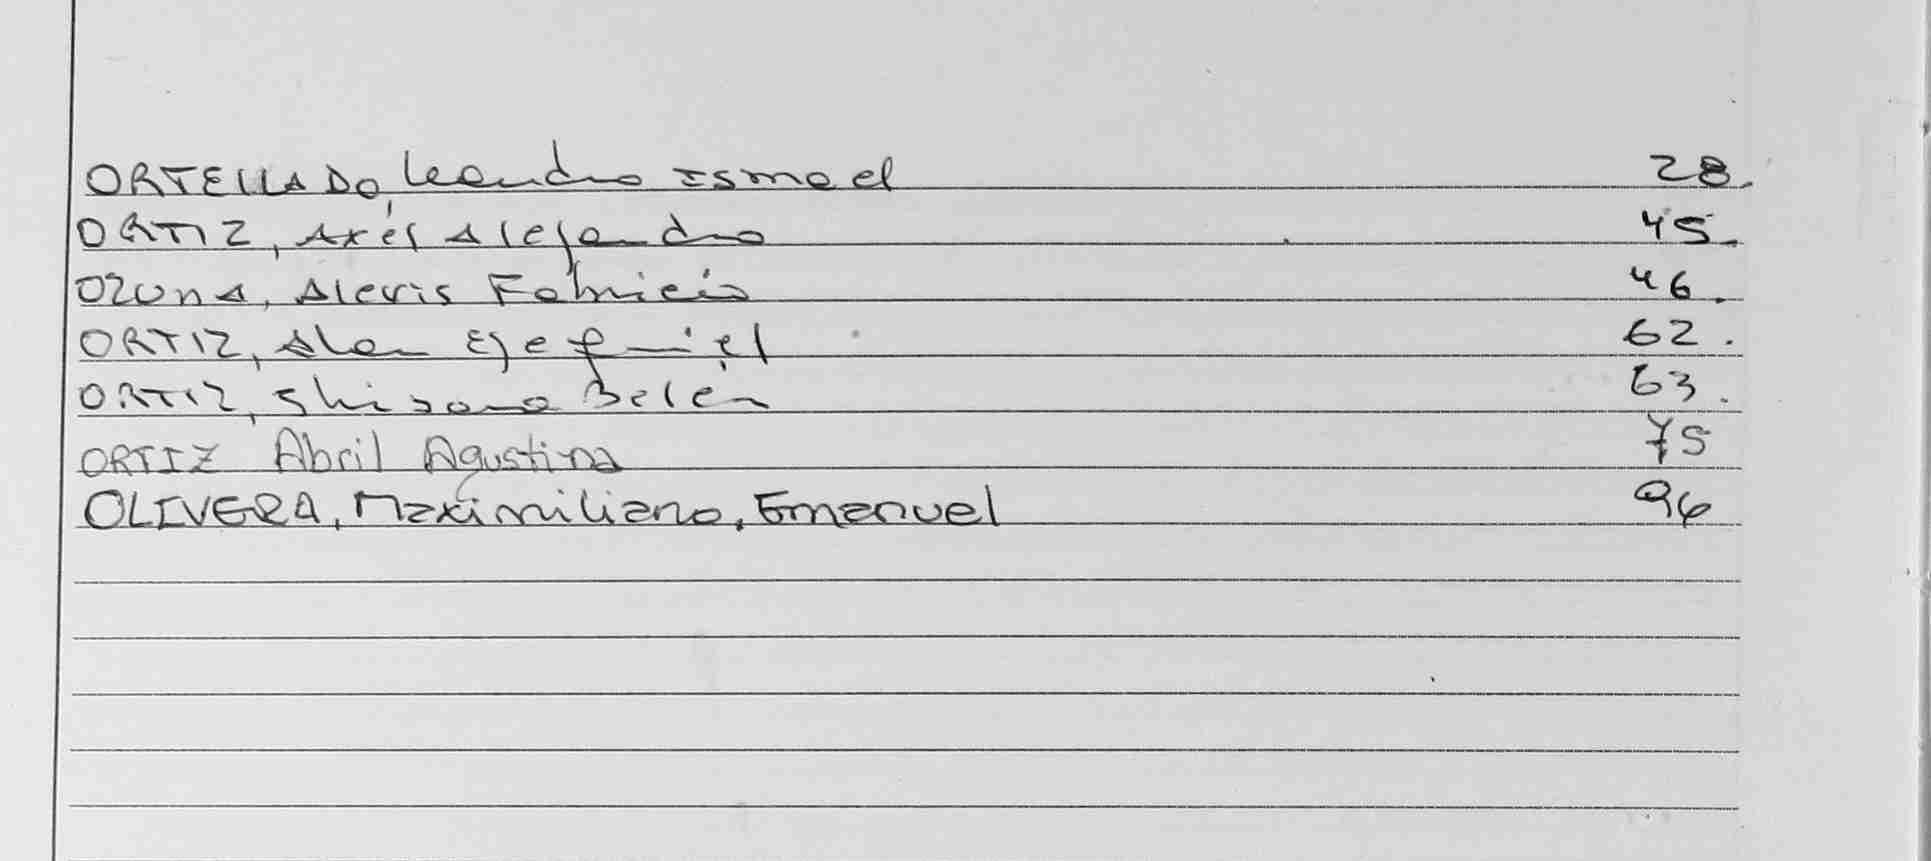 ORTELLADO, Leandro Ismael 28.
ORTIZ, Axel Alejandro 45.
OZUNA, Alexis Fabricio 46.
ORTIZ, Alan Ezequiel 62.
ORTIZ, Belén 63.
ORTIZ Abril Agustina 75
OLIVERA, Maximiliano, Emanuel 96